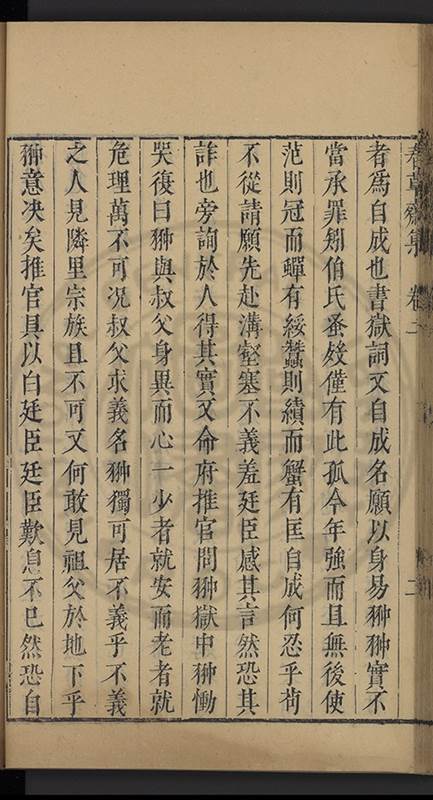 春草齋集 卷二 二
者爲自成也書獄詞文自成名願以身易翀翀實不
當承罪矧伯氏蚤歿僅有此孤今年強而且無後使
范則冠而蟬有綏蠶則績而蟹有匡自成何忍乎茍
不從請願先赴溝壑塞不義羞廷臣感其言然恐其
詐也旁詢於人得其實又命府推官問翀獄中翀慟
哭復曰翀與叔父身異而心一少者就安而老者就
危理萬不可况叔父求義名翀獨可居不義乎不義
之人見隣里宗族且不可又何敢見祖父於地下乎
翀意决矣推官具以白廷臣廷臣歎息不已然恐自